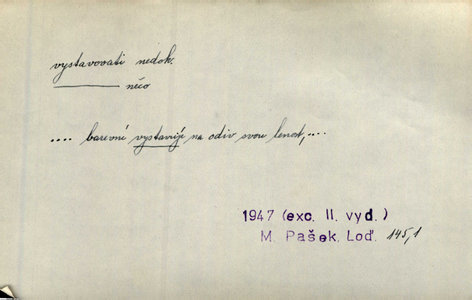 vystavovati nedok.
něco
.... barevní vystavuje na odiv svou lenost,....
1947 (exc. II. vyd.)
M. Pašek, Loď. 145,1